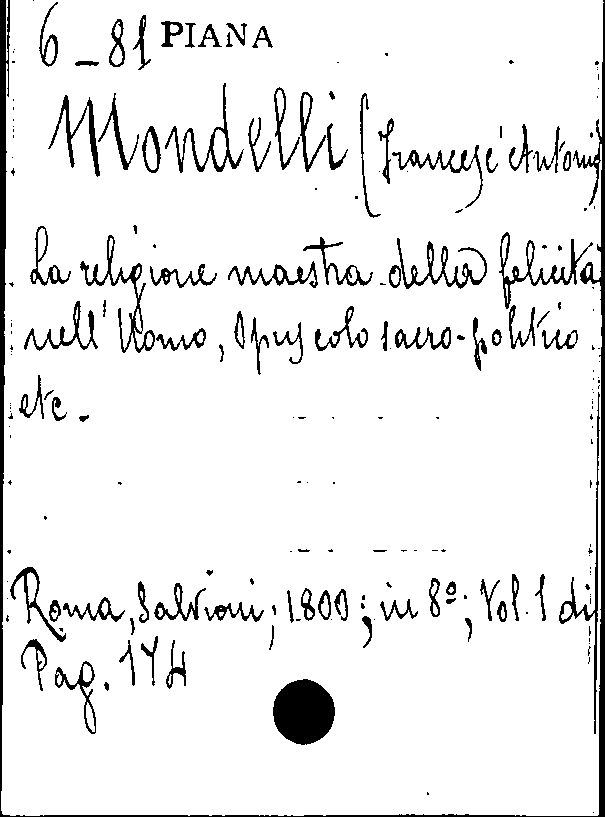 6-81 PIANA
Mondelli (Francesc'Antonio)
La religione maestra della felicità
nell'Uomo, Opuscolo sacro-politico
etc.
Roma, Salvioni; 1800; in 8º; Vol. 1 di
Pag. 174